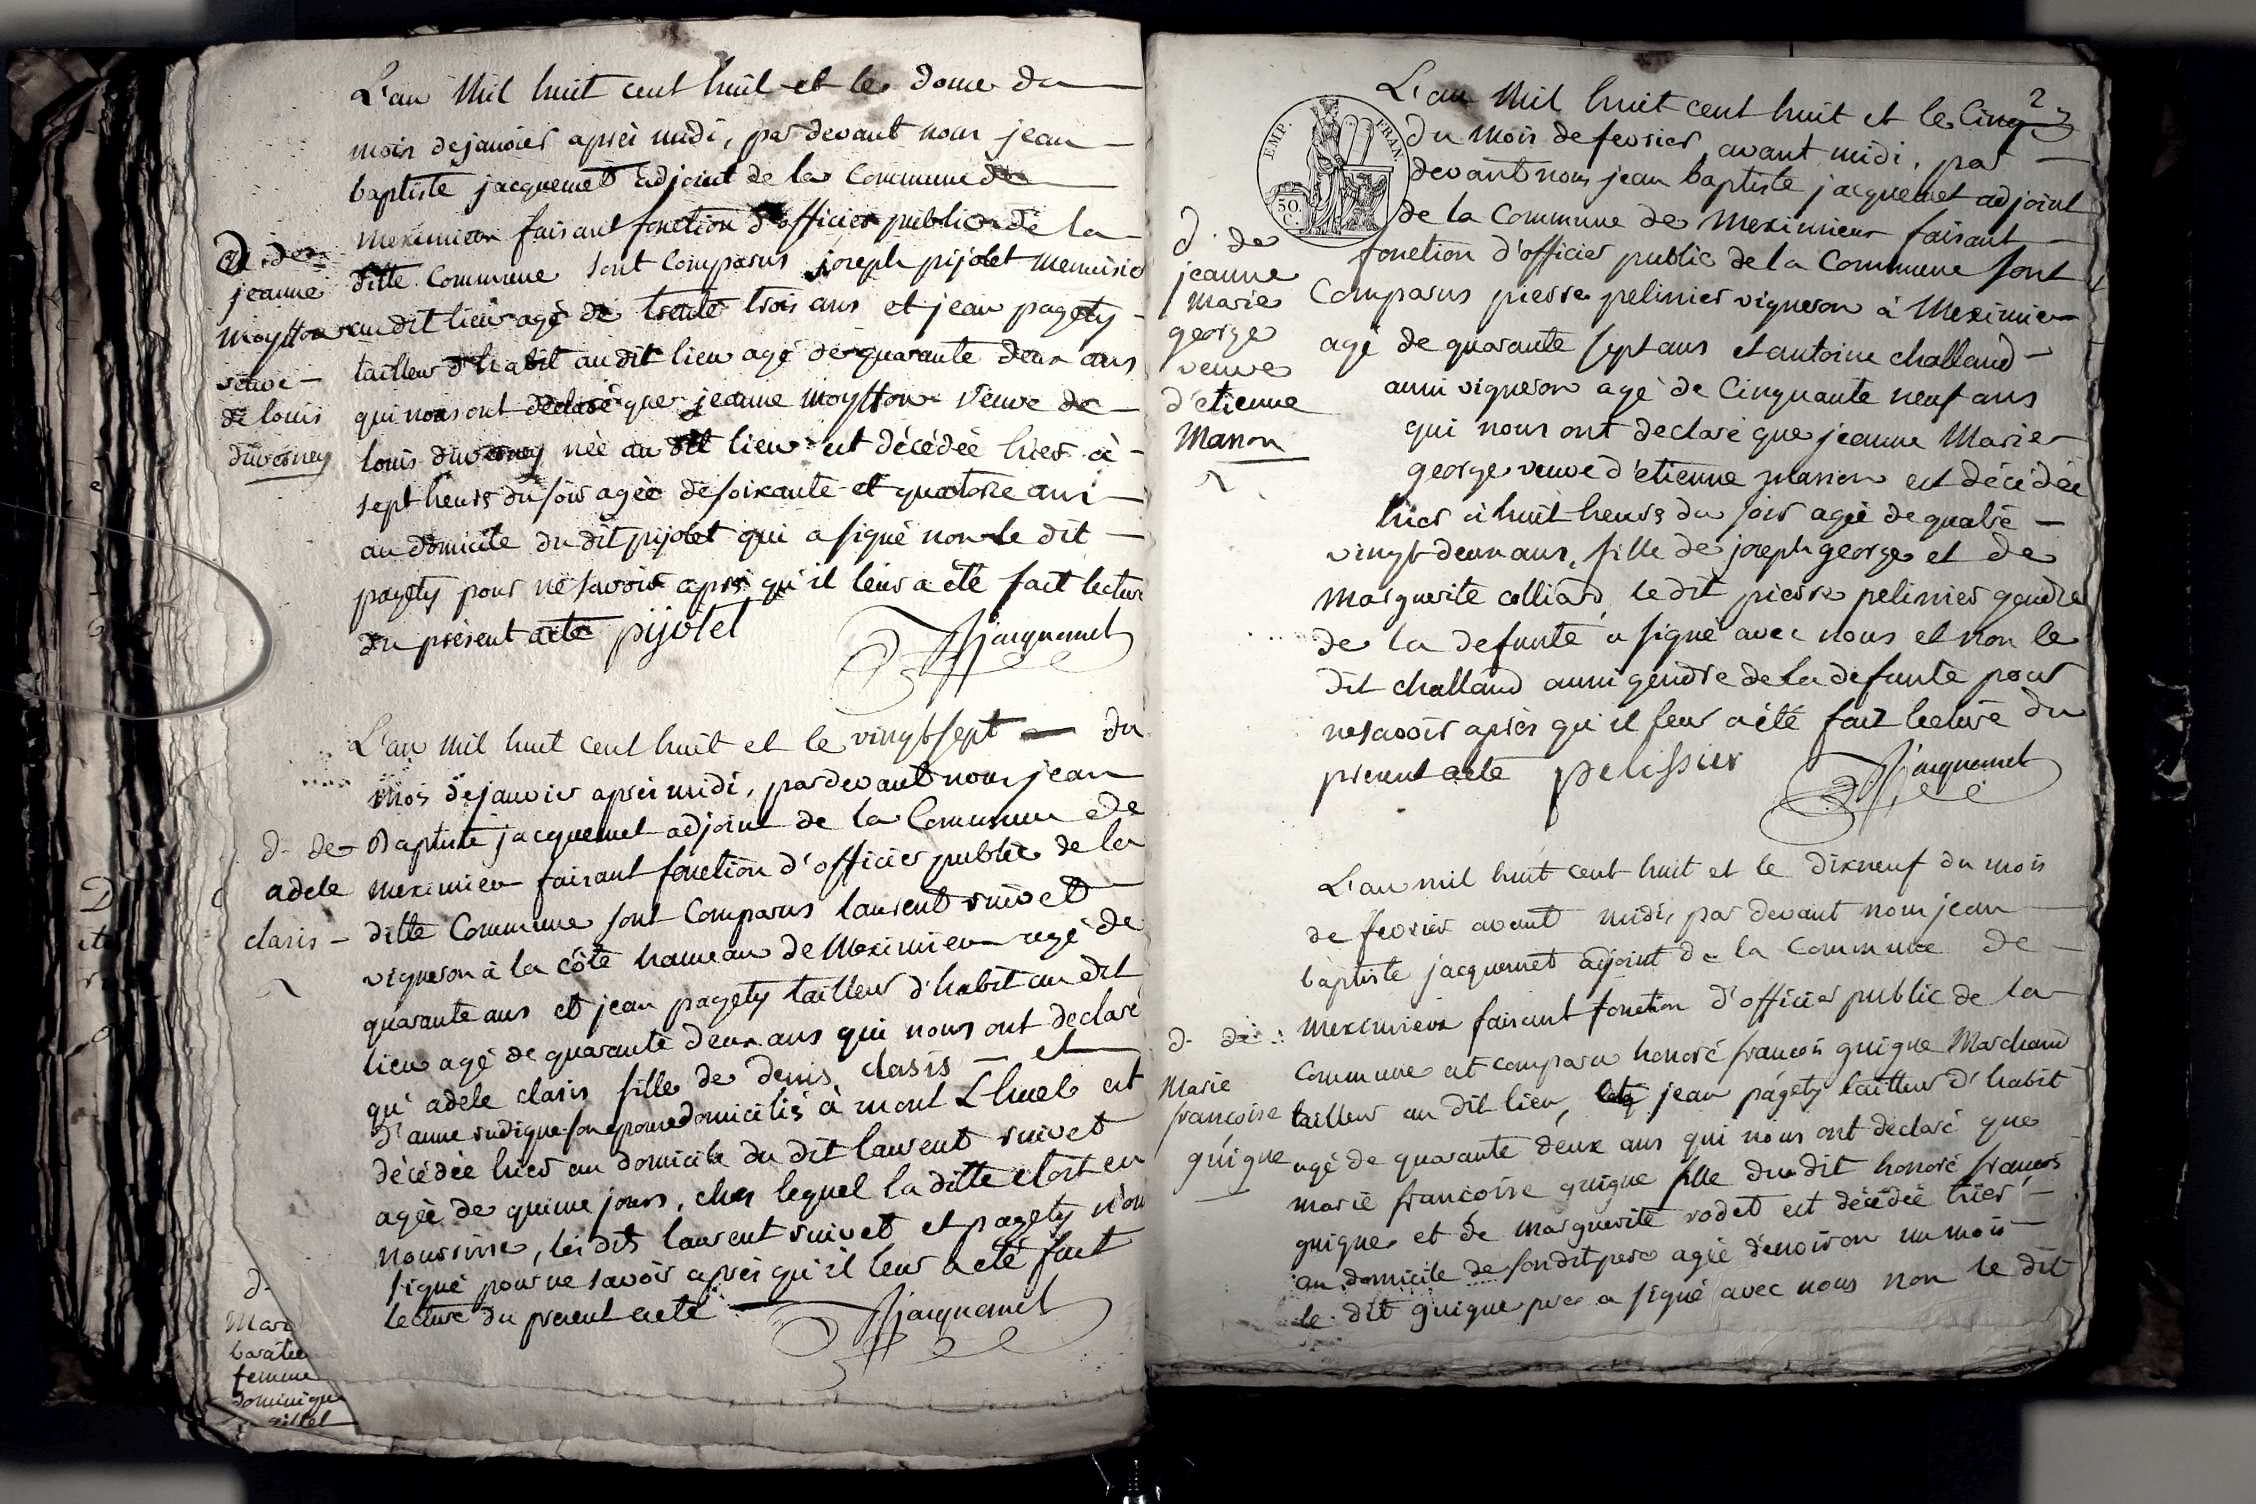 L'an mil huit cent huit et le douze du
mois de janvier après midi, par devant nous jean
baptiste jacquemet adjoint de la Commune de
meximieux faisant fonction d'officier public de la
ditte Commune sont Comparus joseph pijolet menuisier
au dit lieu agé de trente trois ans et jean pagety
tailleur d'habit au dit lieu agé de quarante deux ans
qui nous ont declaré que jeanne moytton veuve de
louis duverney née au dit lieu est décédée hier à
sept heures du soir agée de soixante et quatorze ans
au domicile du dit pijolet qui a signé non le dit
pagety pour ne savoir après qu'il leur a été fait lecture
du présent acte pijolet jacquemet
d. de
jeanne
moytton
veuve
de louis
duverney
L'an mil huit cent huit et le vingt sept du
mois de janvier après midi, par devant nous jean
Baptiste jacquemet adjoint de la Commune de
meximieux faisant fonction d'officier public de la
ditte Commune sont Comparus laurent ruivet
vigneron à la côte hameau de Meximieux agé de
quarante ans et jean pagety tailleur d'habit au dit
lieu agé de quarante deux ans qui nous ont declaré
qu'adele claris fille de denis claris et
d'anne rudigue son epouse domiciliés à mont Lhuel est
décédée hier au domicile du dit laurent ruivet
agée de quinze jours, chez lequel la ditte etoit en
nourrisse, les dits laurent ruivet et pagety n'ont
signé pour ne savoir après qu'il leur a été fait
lecture du present acte jacquemet
d. de
adele
claris
d.
Mar
baratie
femme
dominique
2
L'an mil huit cent huit et le Cinq
du mois de fevrier avant midi, par
devant nous jean baptiste jacquemet adjoint
de la Commune de Meximieux faisant
fonction d'officier public de la Commune sont
Comparus pierre pelissier vigneron à Meximieux
agé de quarante sept ans et antoine challand
aussi vigneron agé de Cinquante neuf ans
qui nous ont declaré que jeanne Marie
george veuve d'etienne masson est décédée
hier à huit heures du soir agée de quatre
vingt deux ans, fille de joseph george et de
Marguerite colliard, le dit pierre pelissier gendre
de la defunte a signé avec nous et non le
dit challand aussi gendre de la defunte pour
ne savoir après qu'il leur a été fait lecture du
present acte pelissier jacquemet
EMP. FRAN.
50. C.
d. de
jeanne
Marie
george
veuve
d'etienne
Masson
L'an mil huit cent huit et le dix neuf du mois
de fevrier avant midi, par devant nous jean
baptiste jacquemet adjoint de la Commune de
Meximieux faisant fonction d'officier public de la
Commune est comparu honoré françois guigue Marchand
tailleur au dit lieu, jean pagety tailleur d'habit
agé de quarante deux ans qui nous ont declaré que
marie françoise guigue fille du dit honoré françois
guigue et de marguerite rodet est décédée hier
au domicile de son dit pere agée d'environ un mois
le dit guigue pere a signé avec nous non le dit
d. de
Marie
françoise
guigue